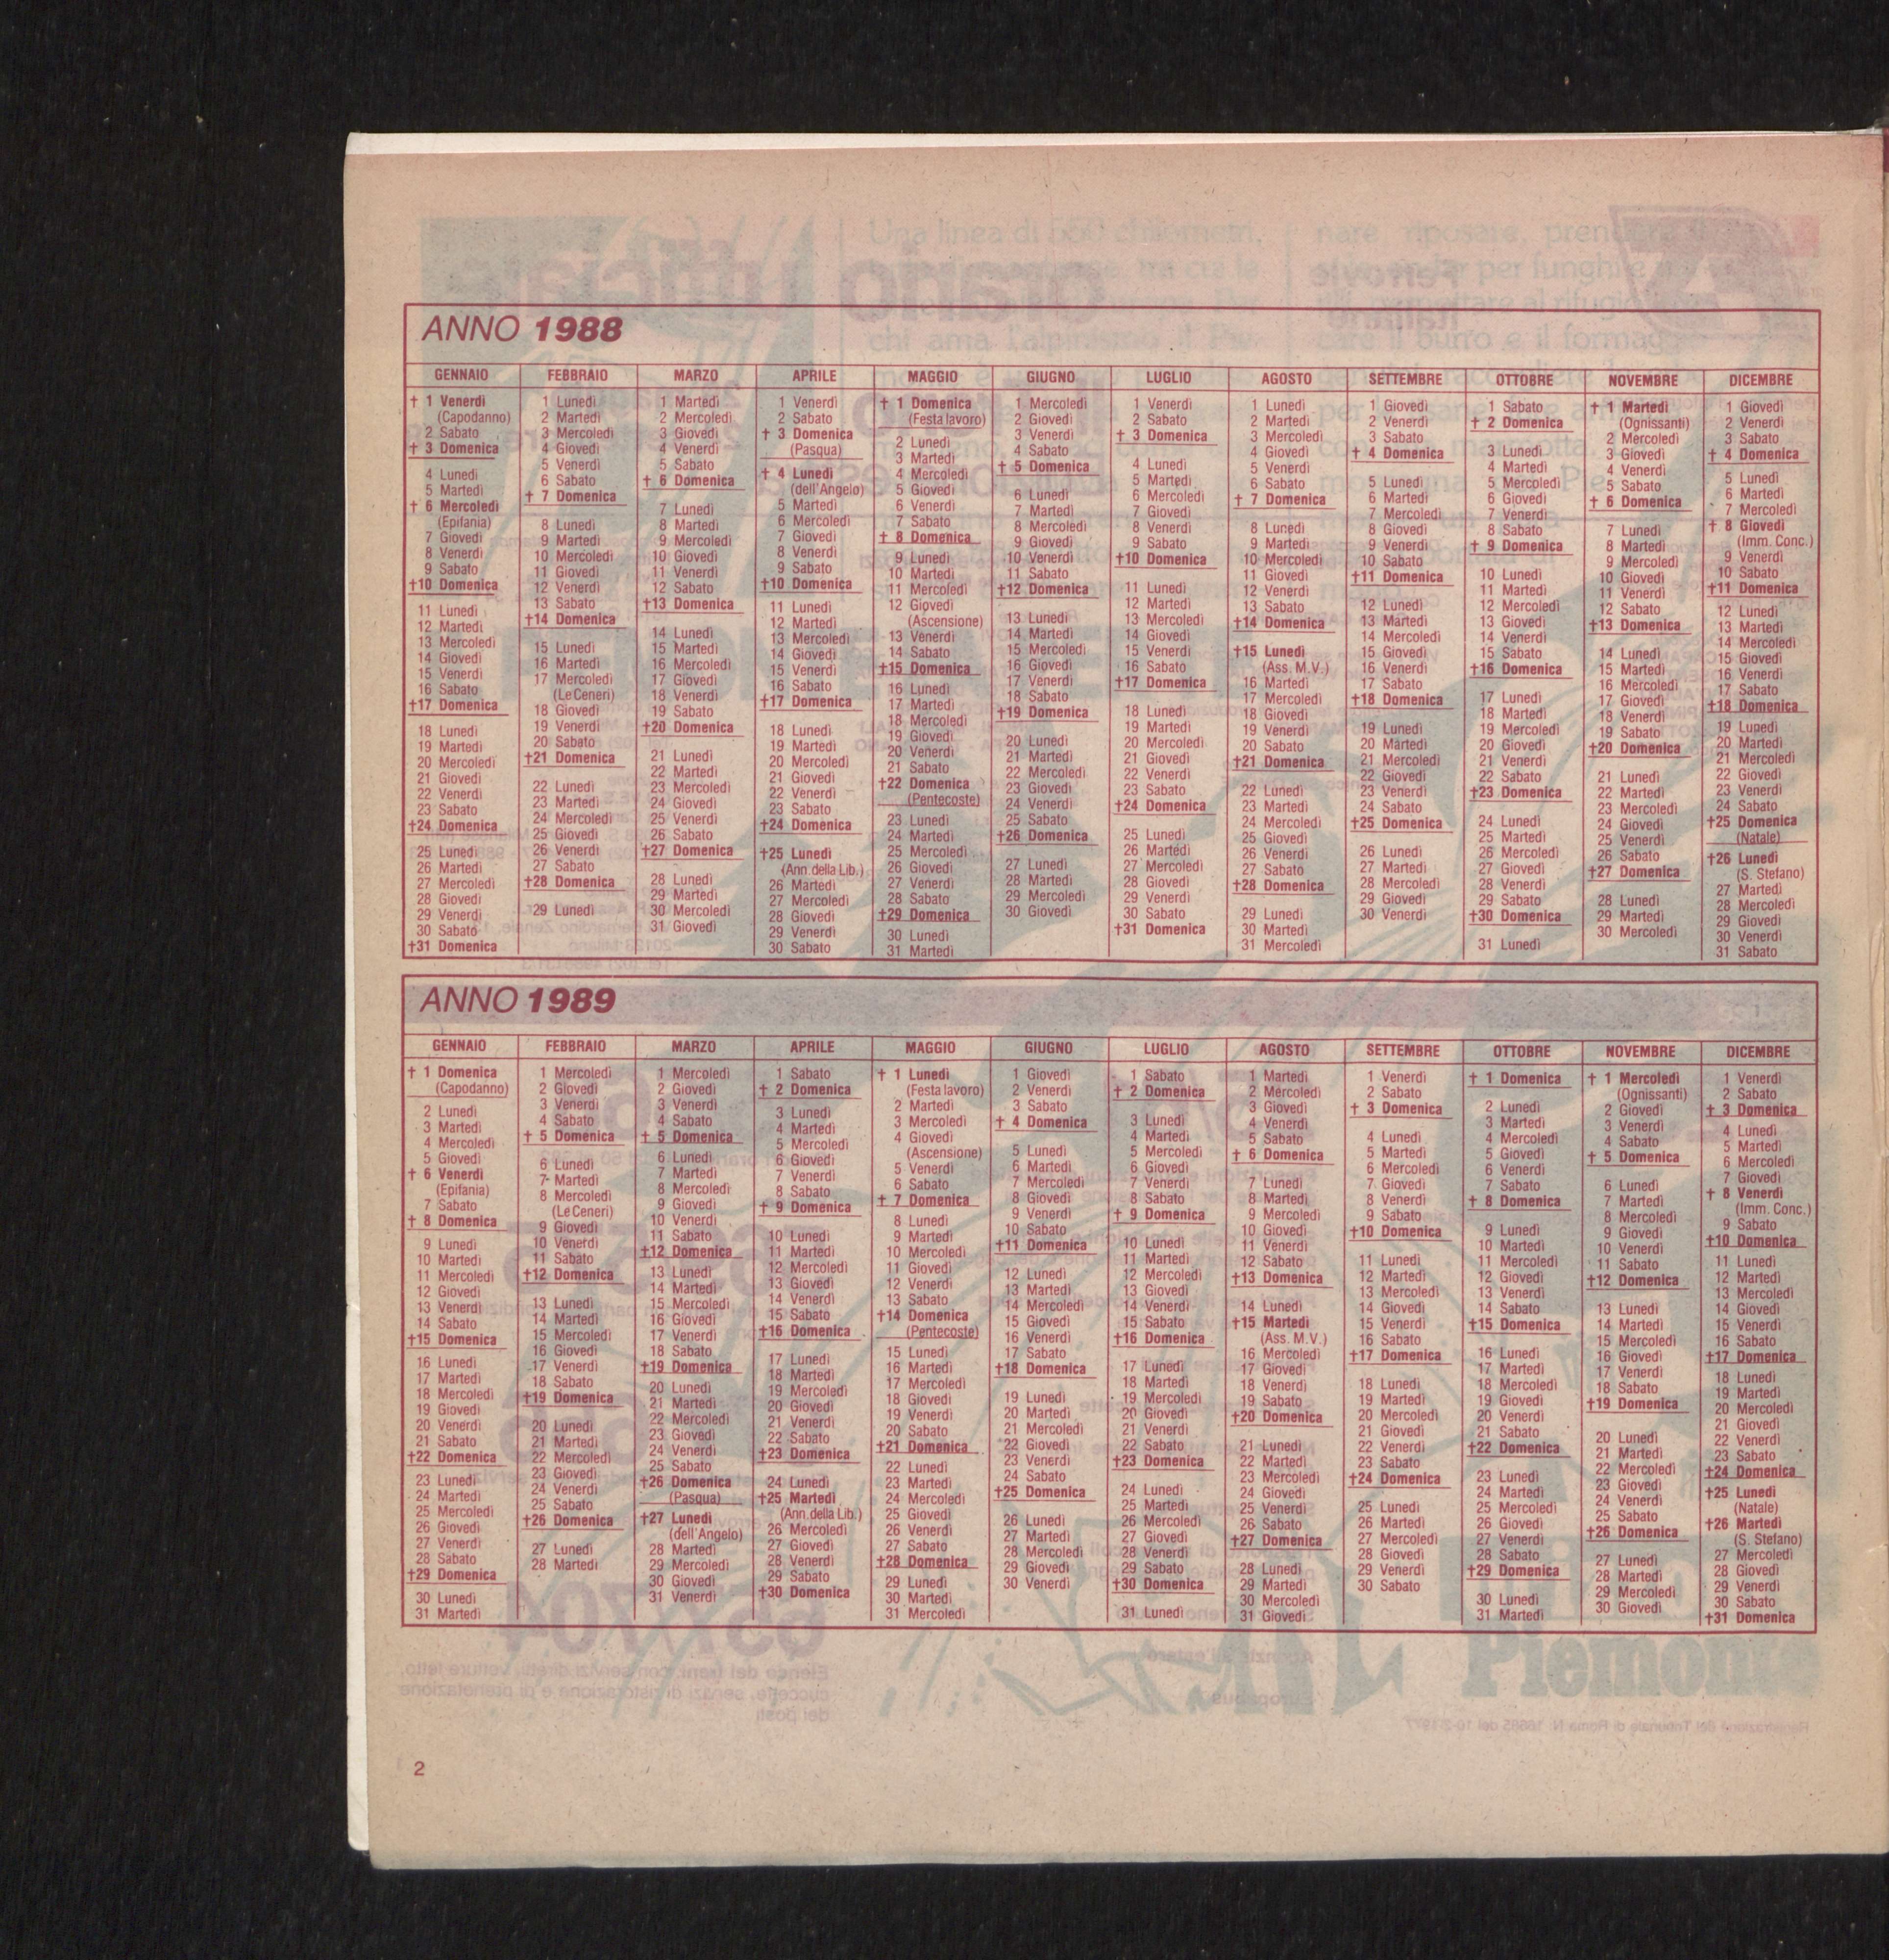 ANNO 1988
GENNAIO
† 1 Venerdì
(Capodanno)
2 Sabato
† 3 Domenica
4 Lunedì
5 Martedì
† 6 Mercoledì
(Epifania)
7 Giovedì
8 Venerdì
9 Sabato
†10 Domenica
11 Lunedì
12 Martedì
13 Mercoledì
14 Giovedì
15 Venerdì
16 Sabato
†17 Domenica
18 Lunedì
19 Martedì
20 Mercoledì
21 Giovedì
22 Venerdì
23 Sabato
†24 Domenica
25 Lunedì
26 Martedì
27 Mercoledì
28 Giovedì
29 Venerdì
30 Sabato
†31 Domenica
FEBBRAIO
1 Lunedì
2 Martedì
3 Mercoledì
4 Giovedì
5 Venerdì
6 Sabato
† 7 Domenica
8 Lunedì
9 Martedì
10 Mercoledì
11 Giovedì
12 Venerdì
13 Sabato
†14 Domenica
15 Lunedì
16 Martedì
17 Mercoledì
(Le Ceneri)
18 Giovedì
19 Venerdì
20 Sabato
†21 Domenica
22 Lunedì
23 Martedì
24 Mercoledì
25 Giovedì
26 Venerdì
27 Sabato
†28 Domenica
29 Lunedì
MARZO
1 Martedì
2 Mercoledì
3 Giovedì
4 Venerdì
5 Sabato
† 6 Domenica
7 Lunedì
8 Martedì
9 Mercoledì
10 Giovedì
11 Venerdì
12 Sabato
†13 Domenica
14 Lunedì
15 Martedì
16 Mercoledì
17 Giovedì
18 Venerdì
19 Sabato
†20 Domenica
21 Lunedì
22 Martedì
23 Mercoledì
24 Giovedì
25 Venerdì
26 Sabato
†27 Domenica
28 Lunedì
29 Martedì
30 Mercoledì
31 Giovedì
APRILE
1 Venerdì
2 Sabato
† 3 Domenica
(Pasqua)
† 4 Lunedì
(dell'Angelo)
5 Martedì
6 Mercoledì
7 Giovedì
8 Venerdì
9 Sabato
†10 Domenica
11 Lunedì
12 Martedì
13 Mercoledì
14 Giovedì
15 Venerdì
16 Sabato
†17 Domenica
18 Lunedì
19 Martedì
20 Mercoledì
21 Giovedì
22 Venerdì
23 Sabato
†24 Domenica
†25 Lunedì
(Ann. della Lib.)
26 Martedì
27 Mercoledì
28 Giovedì
29 Venerdì
30 Sabato
MAGGIO
† 1 Domenica
(Festa lavoro)
2 Lunedì
3 Martedì
4 Mercoledì
5 Giovedì
6 Venerdì
7 Sabato
† 8 Domenica
9 Lunedì
10 Martedì
11 Mercoledì
12 Giovedì
(Ascensione)
13 Venerdì
14 Sabato
†15 Domenica
16 Lunedì
17 Martedì
18 Mercoledì
19 Giovedì
20 Venerdì
21 Sabato
†22 Domenica
(Pentecoste)
23 Lunedì
24 Martedì
25 Mercoledì
26 Giovedì
27 Venerdì
28 Sabato
†29 Domenica
30 Lunedì
31 Martedì
GIUGNO
1 Mercoledì
2 Giovedì
3 Venerdì
4 Sabato
† 5 Domenica
6 Lunedì
7 Martedì
8 Mercoledì
9 Giovedì
10 Venerdì
11 Sabato
†12 Domenica
13 Lunedì
14 Martedì
15 Mercoledì
16 Giovedì
17 Venerdì
18 Sabato
†19 Domenica
20 Lunedì
21 Martedì
22 Mercoledì
23 Giovedì
24 Venerdì
25 Sabato
†26 Domenica
27 Lunedì
28 Martedì
29 Mercoledì
30 Giovedì
LUGLIO
1 Venerdì
2 Sabato
† 3 Domenica
4 Lunedì
5 Martedì
6 Mercoledì
7 Giovedì
8 Venerdì
9 Sabato
†10 Domenica
11 Lunedì
12 Martedì
13 Mercoledì
14 Giovedì
15 Venerdì
16 Sabato
†17 Domenica
18 Lunedì
19 Martedì
20 Mercoledì
21 Giovedì
22 Venerdì
23 Sabato
†24 Domenica
25 Lunedì
26 Martedì
27 Mercoledì
28 Giovedì
29 Venerdì
30 Sabato
†31 Domenica
AGOSTO
1 Lunedì
2 Martedì
3 Mercoledì
4 Giovedì
5 Venerdì
6 Sabato
† 7 Domenica
8 Lunedì
9 Martedì
10 Mercoledì
11 Giovedì
12 Venerdì
13 Sabato
†14 Domenica
†15 Lunedì
(Ass. M.V.)
16 Martedì
17 Mercoledì
18 Giovedì
19 Venerdì
20 Sabato
†21 Domenica
22 Lunedì
23 Martedì
24 Mercoledì
25 Giovedì
26 Venerdì
27 Sabato
†28 Domenica
29 Lunedì
30 Martedì
31 Mercoledì
SETTEMBRE
1 Giovedì
2 Venerdì
3 Sabato
† 4 Domenica
5 Lunedì
6 Martedì
7 Mercoledì
8 Giovedì
9 Venerdì
10 Sabato
†11 Domenica
12 Lunedì
13 Martedì
14 Mercoledì
15 Giovedì
16 Venerdì
17 Sabato
†18 Domenica
19 Lunedì
20 Martedì
21 Mercoledì
22 Giovedì
23 Venerdì
24 Sabato
†25 Domenica
26 Lunedì
27 Martedì
28 Mercoledì
29 Giovedì
30 Venerdì
OTTOBRE
1 Sabato
† 2 Domenica
3 Lunedì
4 Martedì
5 Mercoledì
6 Giovedì
7 Venerdì
8 Sabato
† 9 Domenica
10 Lunedì
11 Martedì
12 Mercoledì
13 Giovedì
14 Venerdì
15 Sabato
†16 Domenica
17 Lunedì
18 Martedì
19 Mercoledì
20 Giovedì
21 Venerdì
22 Sabato
†23 Domenica
24 Lunedì
25 Martedì
26 Mercoledì
27 Giovedì
28 Venerdì
29 Sabato
†30 Domenica
31 Lunedì
NOVEMBRE
† 1 Martedì
(Ognissanti)
2 Mercoledì
3 Giovedì
4 Venerdì
5 Sabato
† 6 Domenica
7 Lunedì
8 Martedì
9 Mercoledì
10 Giovedì
11 Venerdì
12 Sabato
†13 Domenica
14 Lunedì
15 Martedì
16 Mercoledì
17 Giovedì
18 Venerdì
19 Sabato
†20 Domenica
21 Lunedì
22 Martedì
23 Mercoledì
24 Giovedì
25 Venerdì
26 Sabato
†27 Domenica
28 Lunedì
29 Martedì
30 Mercoledì
DICEMBRE
1 Giovedì
2 Venerdì
3 Sabato
† 4 Domenica
5 Lunedì
6 Martedì
7 Mercoledì
† 8 Giovedì
(Imm. Conc.)
9 Venerdì
10 Sabato
†11 Domenica
12 Lunedì
13 Martedì
14 Mercoledì
15 Giovedì
16 Venerdì
17 Sabato
†18 Domenica
19 Lunedì
20 Martedì
21 Mercoledì
22 Giovedì
23 Venerdì
24 Sabato
†25 Domenica
(Natale)
†26 Lunedì
(S. Stefano)
27 Martedì
28 Mercoledì
29 Giovedì
30 Venerdì
31 Sabato
ANNO 1989
GENNAIO
† 1 Domenica
(Capodanno)
2 Lunedì
3 Martedì
4 Mercoledì
5 Giovedì
† 6 Venerdì
(Epifania)
7 Sabato
† 8 Domenica
9 Lunedì
10 Martedì
11 Mercoledì
12 Giovedì
13 Venerdì
14 Sabato
†15 Domenica
16 Lunedì
17 Martedì
18 Mercoledì
19 Giovedì
20 Venerdì
21 Sabato
†22 Domenica
23 Lunedì
24 Martedì
25 Mercoledì
26 Giovedì
27 Venerdì
28 Sabato
†29 Domenica
30 Lunedì
31 Martedì
FEBBRAIO
1 Mercoledì
2 Giovedì
3 Venerdì
4 Sabato
† 5 Domenica
6 Lunedì
7 Martedì
8 Mercoledì
(Le Ceneri)
9 Giovedì
10 Venerdì
11 Sabato
†12 Domenica
13 Lunedì
14 Martedì
15 Mercoledì
16 Giovedì
17 Venerdì
18 Sabato
†19 Domenica
20 Lunedì
21 Martedì
22 Mercoledì
23 Giovedì
24 Venerdì
25 Sabato
†26 Domenica
27 Lunedì
28 Martedì
MARZO
1 Mercoledì
2 Giovedì
3 Venerdì
4 Sabato
† 5 Domenica
6 Lunedì
7 Martedì
8 Mercoledì
9 Giovedì
10 Venerdì
11 Sabato
†12 Domenica
13 Lunedì
14 Martedì
15 Mercoledì
16 Giovedì
17 Venerdì
18 Sabato
†19 Domenica
20 Lunedì
21 Martedì
22 Mercoledì
23 Giovedì
24 Venerdì
25 Sabato
†26 Domenica
(Pasqua)
†27 Lunedì
(dell'Angelo)
28 Martedì
29 Mercoledì
30 Giovedì
31 Venerdì
APRILE
1 Sabato
† 2 Domenica
3 Lunedì
4 Martedì
5 Mercoledì
6 Giovedì
7 Venerdì
8 Sabato
† 9 Domenica
10 Lunedì
11 Martedì
12 Mercoledì
13 Giovedì
14 Venerdì
15 Sabato
†16 Domenica
17 Lunedì
18 Martedì
19 Mercoledì
20 Giovedì
21 Venerdì
22 Sabato
†23 Domenica
24 Lunedì
†25 Martedì
(Ann. della Lib.)
26 Mercoledì
27 Giovedì
28 Venerdì
29 Sabato
†30 Domenica
MAGGIO
† 1 Lunedì
(Festa lavoro)
2 Martedì
3 Mercoledì
4 Giovedì
(Ascensione)
5 Venerdì
6 Sabato
† 7 Domenica
8 Lunedì
9 Martedì
10 Mercoledì
11 Giovedì
12 Venerdì
13 Sabato
†14 Domenica
(Pentecoste)
15 Lunedì
16 Martedì
17 Mercoledì
18 Giovedì
19 Venerdì
20 Sabato
†21 Domenica
22 Lunedì
23 Martedì
24 Mercoledì
25 Giovedì
26 Venerdì
27 Sabato
†28 Domenica
29 Lunedì
30 Martedì
31 Mercoledì
GIUGNO
1 Giovedì
2 Venerdì
3 Sabato
† 4 Domenica
5 Lunedì
6 Martedì
7 Mercoledì
8 Giovedì
9 Venerdì
10 Sabato
†11 Domenica
12 Lunedì
13 Martedì
14 Mercoledì
15 Giovedì
16 Venerdì
17 Sabato
†18 Domenica
19 Lunedì
20 Martedì
21 Mercoledì
22 Giovedì
23 Venerdì
24 Sabato
†25 Domenica
26 Lunedì
27 Martedì
28 Mercoledì
29 Giovedì
30 Venerdì
LUGLIO
1 Sabato
† 2 Domenica
3 Lunedì
4 Martedì
5 Mercoledì
6 Giovedì
7 Venerdì
8 Sabato
† 9 Domenica
10 Lunedì
11 Martedì
12 Mercoledì
13 Giovedì
14 Venerdì
15 Sabato
†16 Domenica
17 Lunedì
18 Martedì
19 Mercoledì
20 Giovedì
21 Venerdì
22 Sabato
†23 Domenica
24 Lunedì
25 Martedì
26 Mercoledì
27 Giovedì
28 Venerdì
29 Sabato
†30 Domenica
31 Lunedì
AGOSTO
1 Martedì
2 Mercoledì
3 Giovedì
4 Venerdì
5 Sabato
† 6 Domenica
7 Lunedì
8 Martedì
9 Mercoledì
10 Giovedì
11 Venerdì
12 Sabato
†13 Domenica
14 Lunedì
†15 Martedì
(Ass. M.V.)
16 Mercoledì
17 Giovedì
18 Venerdì
19 Sabato
†20 Domenica
21 Lunedì
22 Martedì
23 Mercoledì
24 Giovedì
25 Venerdì
26 Sabato
†27 Domenica
28 Lunedì
29 Martedì
30 Mercoledì
31 Giovedì
SETTEMBRE
1 Venerdì
2 Sabato
† 3 Domenica
4 Lunedì
5 Martedì
6 Mercoledì
7 Giovedì
8 Venerdì
9 Sabato
†10 Domenica
11 Lunedì
12 Martedì
13 Mercoledì
14 Giovedì
15 Venerdì
16 Sabato
†17 Domenica
18 Lunedì
19 Martedì
20 Mercoledì
21 Giovedì
22 Venerdì
23 Sabato
†24 Domenica
25 Lunedì
26 Martedì
27 Mercoledì
28 Giovedì
29 Venerdì
30 Sabato
OTTOBRE
† 1 Domenica
2 Lunedì
3 Martedì
4 Mercoledì
5 Giovedì
6 Venerdì
7 Sabato
† 8 Domenica
9 Lunedì
10 Martedì
11 Mercoledì
12 Giovedì
13 Venerdì
14 Sabato
†15 Domenica
16 Lunedì
17 Martedì
18 Mercoledì
19 Giovedì
20 Venerdì
21 Sabato
†22 Domenica
23 Lunedì
24 Martedì
25 Mercoledì
26 Giovedì
27 Venerdì
28 Sabato
†29 Domenica
30 Lunedì
31 Martedì
NOVEMBRE
† 1 Mercoledì
(Ognissanti)
2 Giovedì
3 Venerdì
4 Sabato
† 5 Domenica
6 Lunedì
7 Martedì
8 Mercoledì
9 Giovedì
10 Venerdì
11 Sabato
†12 Domenica
13 Lunedì
14 Martedì
15 Mercoledì
16 Giovedì
17 Venerdì
18 Sabato
†19 Domenica
20 Lunedì
21 Martedì
22 Mercoledì
23 Giovedì
24 Venerdì
25 Sabato
†26 Domenica
27 Lunedì
28 Martedì
29 Mercoledì
30 Giovedì
DICEMBRE
1 Venerdì
2 Sabato
† 3 Domenica
4 Lunedì
5 Martedì
6 Mercoledì
7 Giovedì
† 8 Venerdì
(Imm. Conc.)
9 Sabato
†10 Domenica
11 Lunedì
12 Martedì
13 Mercoledì
14 Giovedì
15 Venerdì
16 Sabato
†17 Domenica
18 Lunedì
19 Martedì
20 Mercoledì
21 Giovedì
22 Venerdì
23 Sabato
†24 Domenica
†25 Lunedì
(Natale)
†26 Martedì
(S. Stefano)
27 Mercoledì
28 Giovedì
29 Venerdì
30 Sabato
†31 Domenica
2